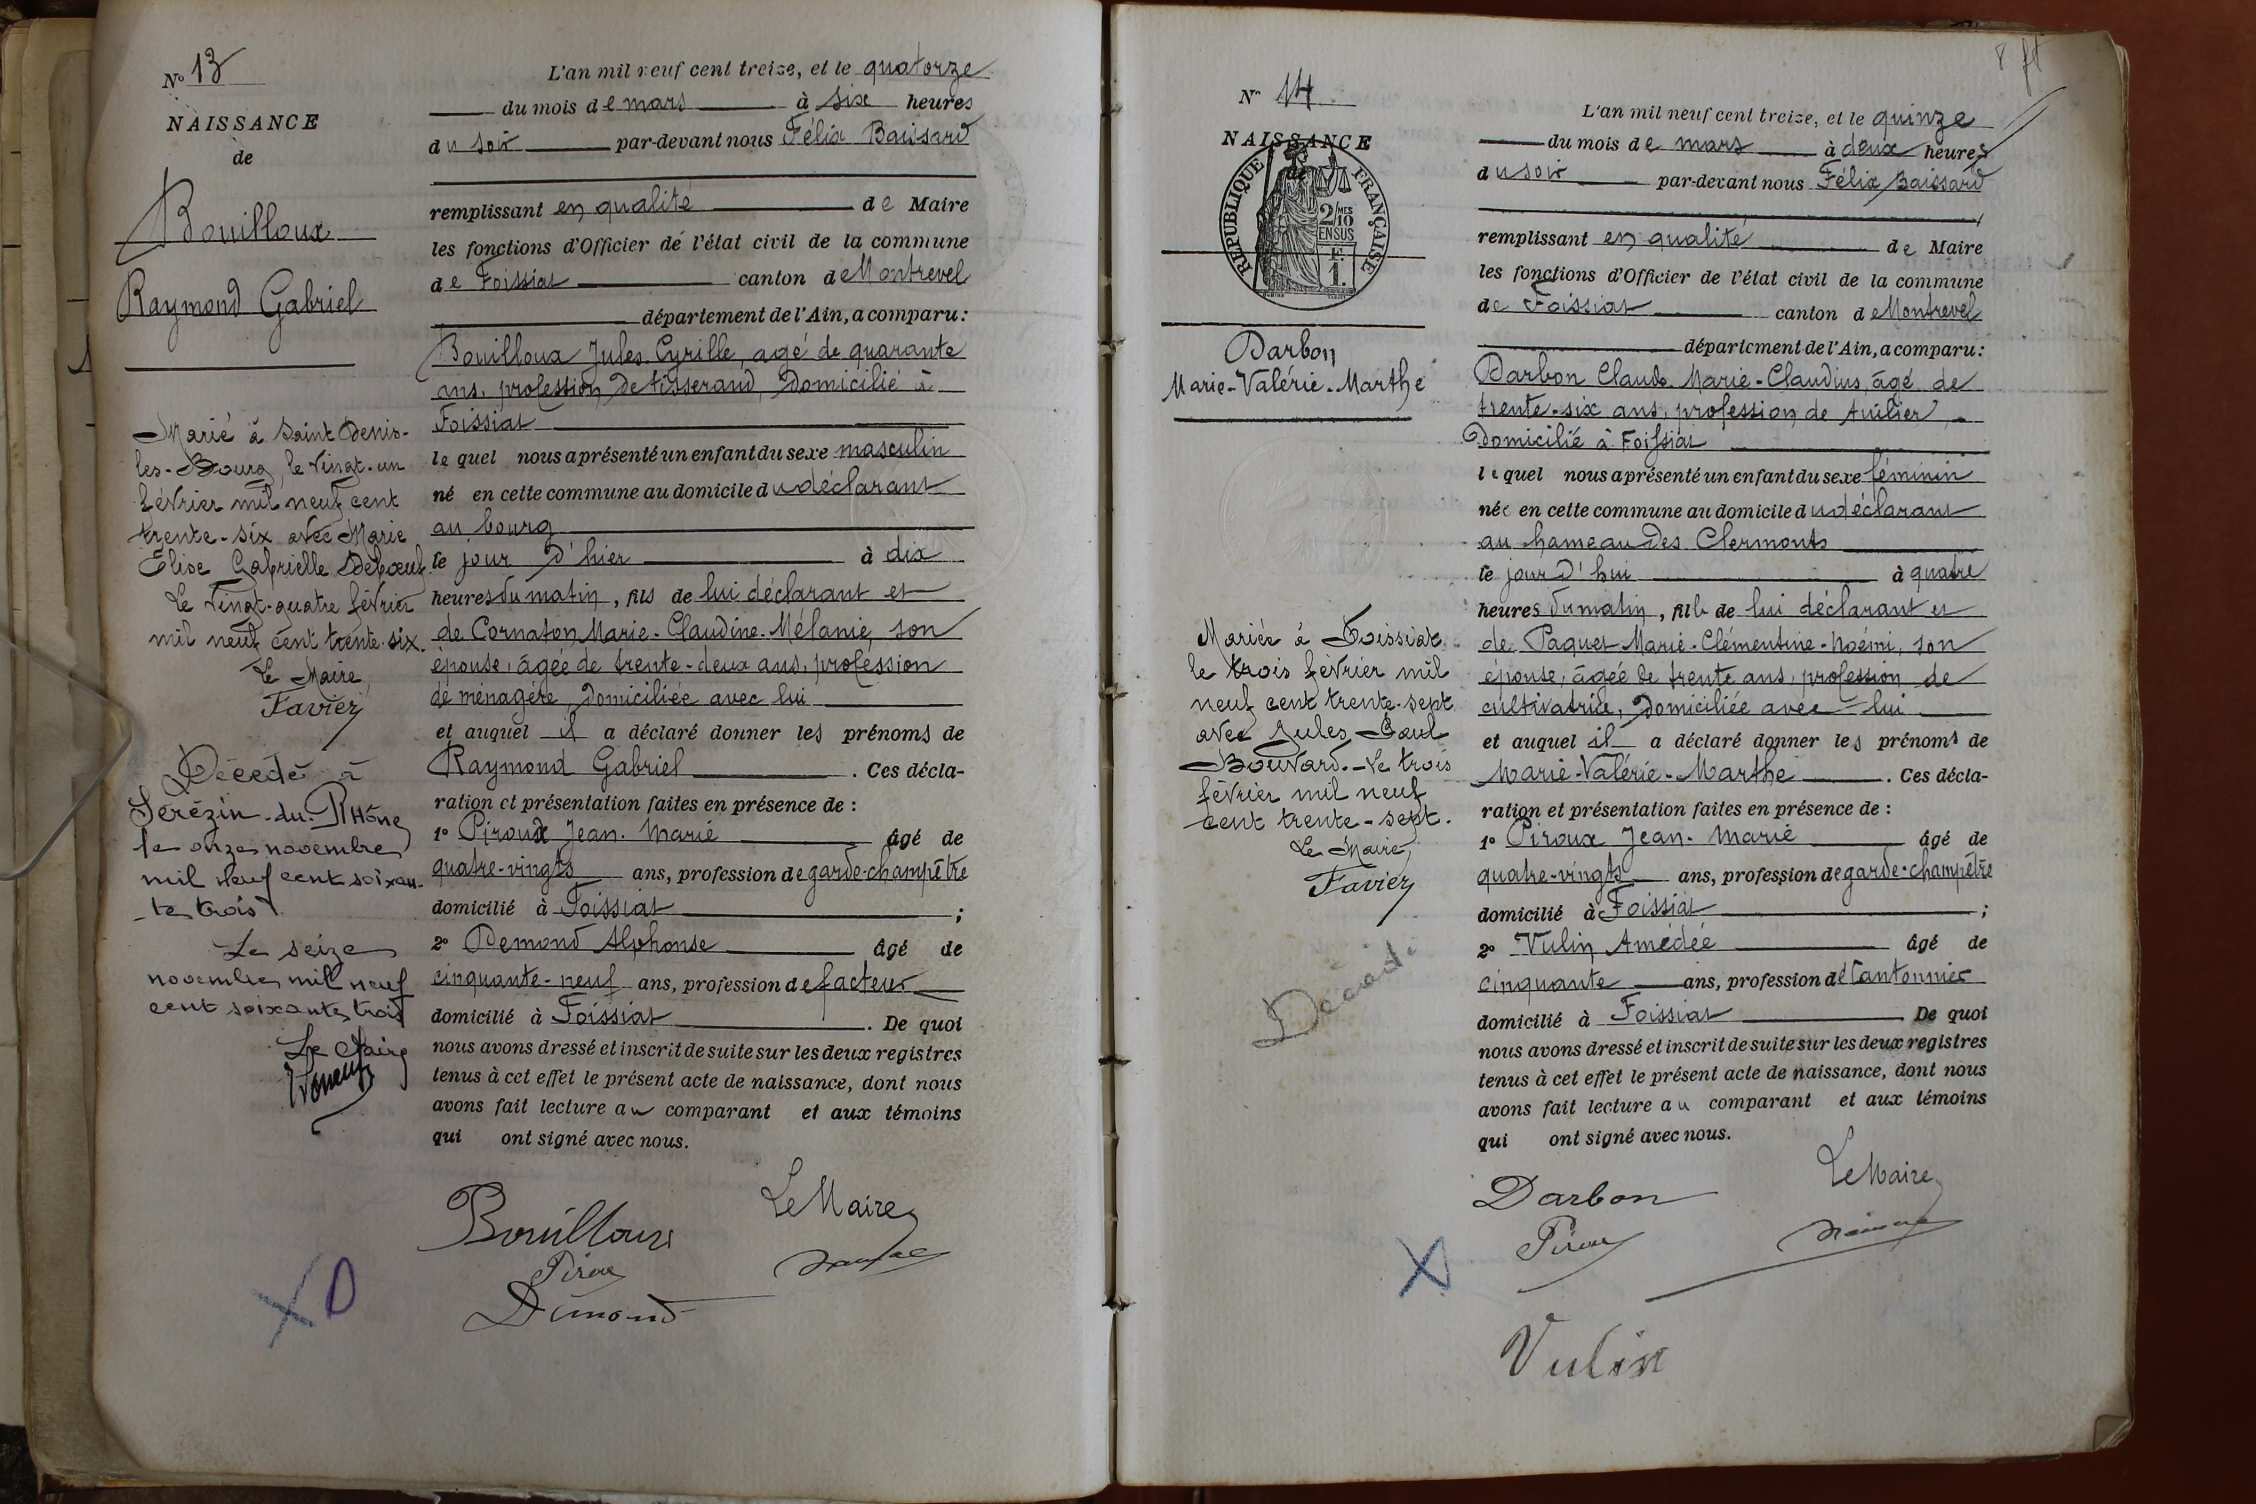 N° 13
NAISSANCE
de
Bouilloux
Raymond Gabriel
Marié à Saint Denis-
les-Bourg, le vingt-un
février mil neuf cent
trente-six avec Marie
Elise Gabrielle Debœuf
Le vingt-quatre février
mil neuf cent trente-six.
Le Maire,
Favier
Décédé à
Serézin-du-Rhône
le onze novembre
mil neuf cent soixan-
te trois
Le seize
novembre mil neuf
cent soixante trois
Le Maire
L'an mil neuf cent treize, et le quatorze
du mois de mars à six heures
du soir par-devant nous Félix Baissard
remplissant en qualité de Maire
les fonctions d'Officier de l'état civil de la commune
de Foissiat canton de Montrevel
département de l'Ain, a comparu:
Bouilloux Jules Cyrille, agé de quarante
ans, profession de tisserand, domicilié à
Foissiat
le quel nous a présenté un enfant du sexe masculin
né en cette commune au domicile du déclarant
au bourg
le jour d'hier à dix
heures du matin, fils de lui déclarant et
de Cornaton Marie-Claudine-Mélanie, son
épouse, âgée de trente-deux ans, profession
de ménagère, domiciliée avec lui
et auquel il a déclaré donner les prénoms de
Raymond Gabriel. Ces décla-
ration et présentation faites en présence de:
1° Piroux Jean-Marie âgé de
quatre-vingts ans, profession de garde-champêtre
domicilié à Foissiat;
2° Demond Alphonse âgé de
cinquante-neuf ans, profession de facteur
domicilié à Foissiat. De quoi
nous avons dressé et inscrit de suite sur les deux registres
tenus à cet effet le présent acte de naissance, dont nous
avons fait lecture au comparant et aux témoins
qui ont signé avec nous.
Bouilloux
Le Maire
Piroux
Dimond
X D
8 ft
N° 14
NAISSANCE
de
RÉPUBLIQUE FRANÇAISE
2/10 MES
EN SUS
F.
1.
Darbon
Marie-Valérie-Marthe
Mariée à Foissiat
le trois février mil
neuf cent trente-sept
avec Jules Paul
Bouvard. - Le trois
février mil neuf
cent trente-sept.
Le Maire,
Favier
Décédée
L'an mil neuf cent treize, et le quinze
du mois de mars à deux heures
du soir par-devant nous Félix Baissard
remplissant en qualité de Maire
les fonctions d'Officier de l'état civil de la commune
de Foissiat canton de Montrevel
département de l'Ain, a comparu:
Darbon Claude-Marie-Claudius, âgé de
trente-six ans, profession de tuilier,
domicilié à Foissiat
lequel nous a présenté un enfant du sexe féminin
née en cette commune au domicile du déclarant
au hameau des Clermonts
le jour d'hui à quatre
heures du matin, fille de lui déclarant et
de Paquet Marie-Clémentine-Noémi, son
épouse, âgée de trente ans, profession de
cultivatrice, domiciliée avec lui
et auquel il a déclaré donner les prénoms de
Marie-Valérie-Marthe. Ces décla-
ration et présentation faites en présence de:
1° Piroux Jean-Marie âgé de
quatre-vingts ans, profession de garde-champêtre
domicilié à Foissiat;
2° Vulin Amédée âgé de
cinquante ans, profession de Cantonnier
domicilié à Foissiat De quoi
nous avons dressé et inscrit de suite sur les deux registres
tenus à cet effet le présent acte de naissance, dont nous
avons fait lecture au comparant et aux témoins
qui ont signé avec nous.
Darbon
Le Maire
Piroux
Vulin